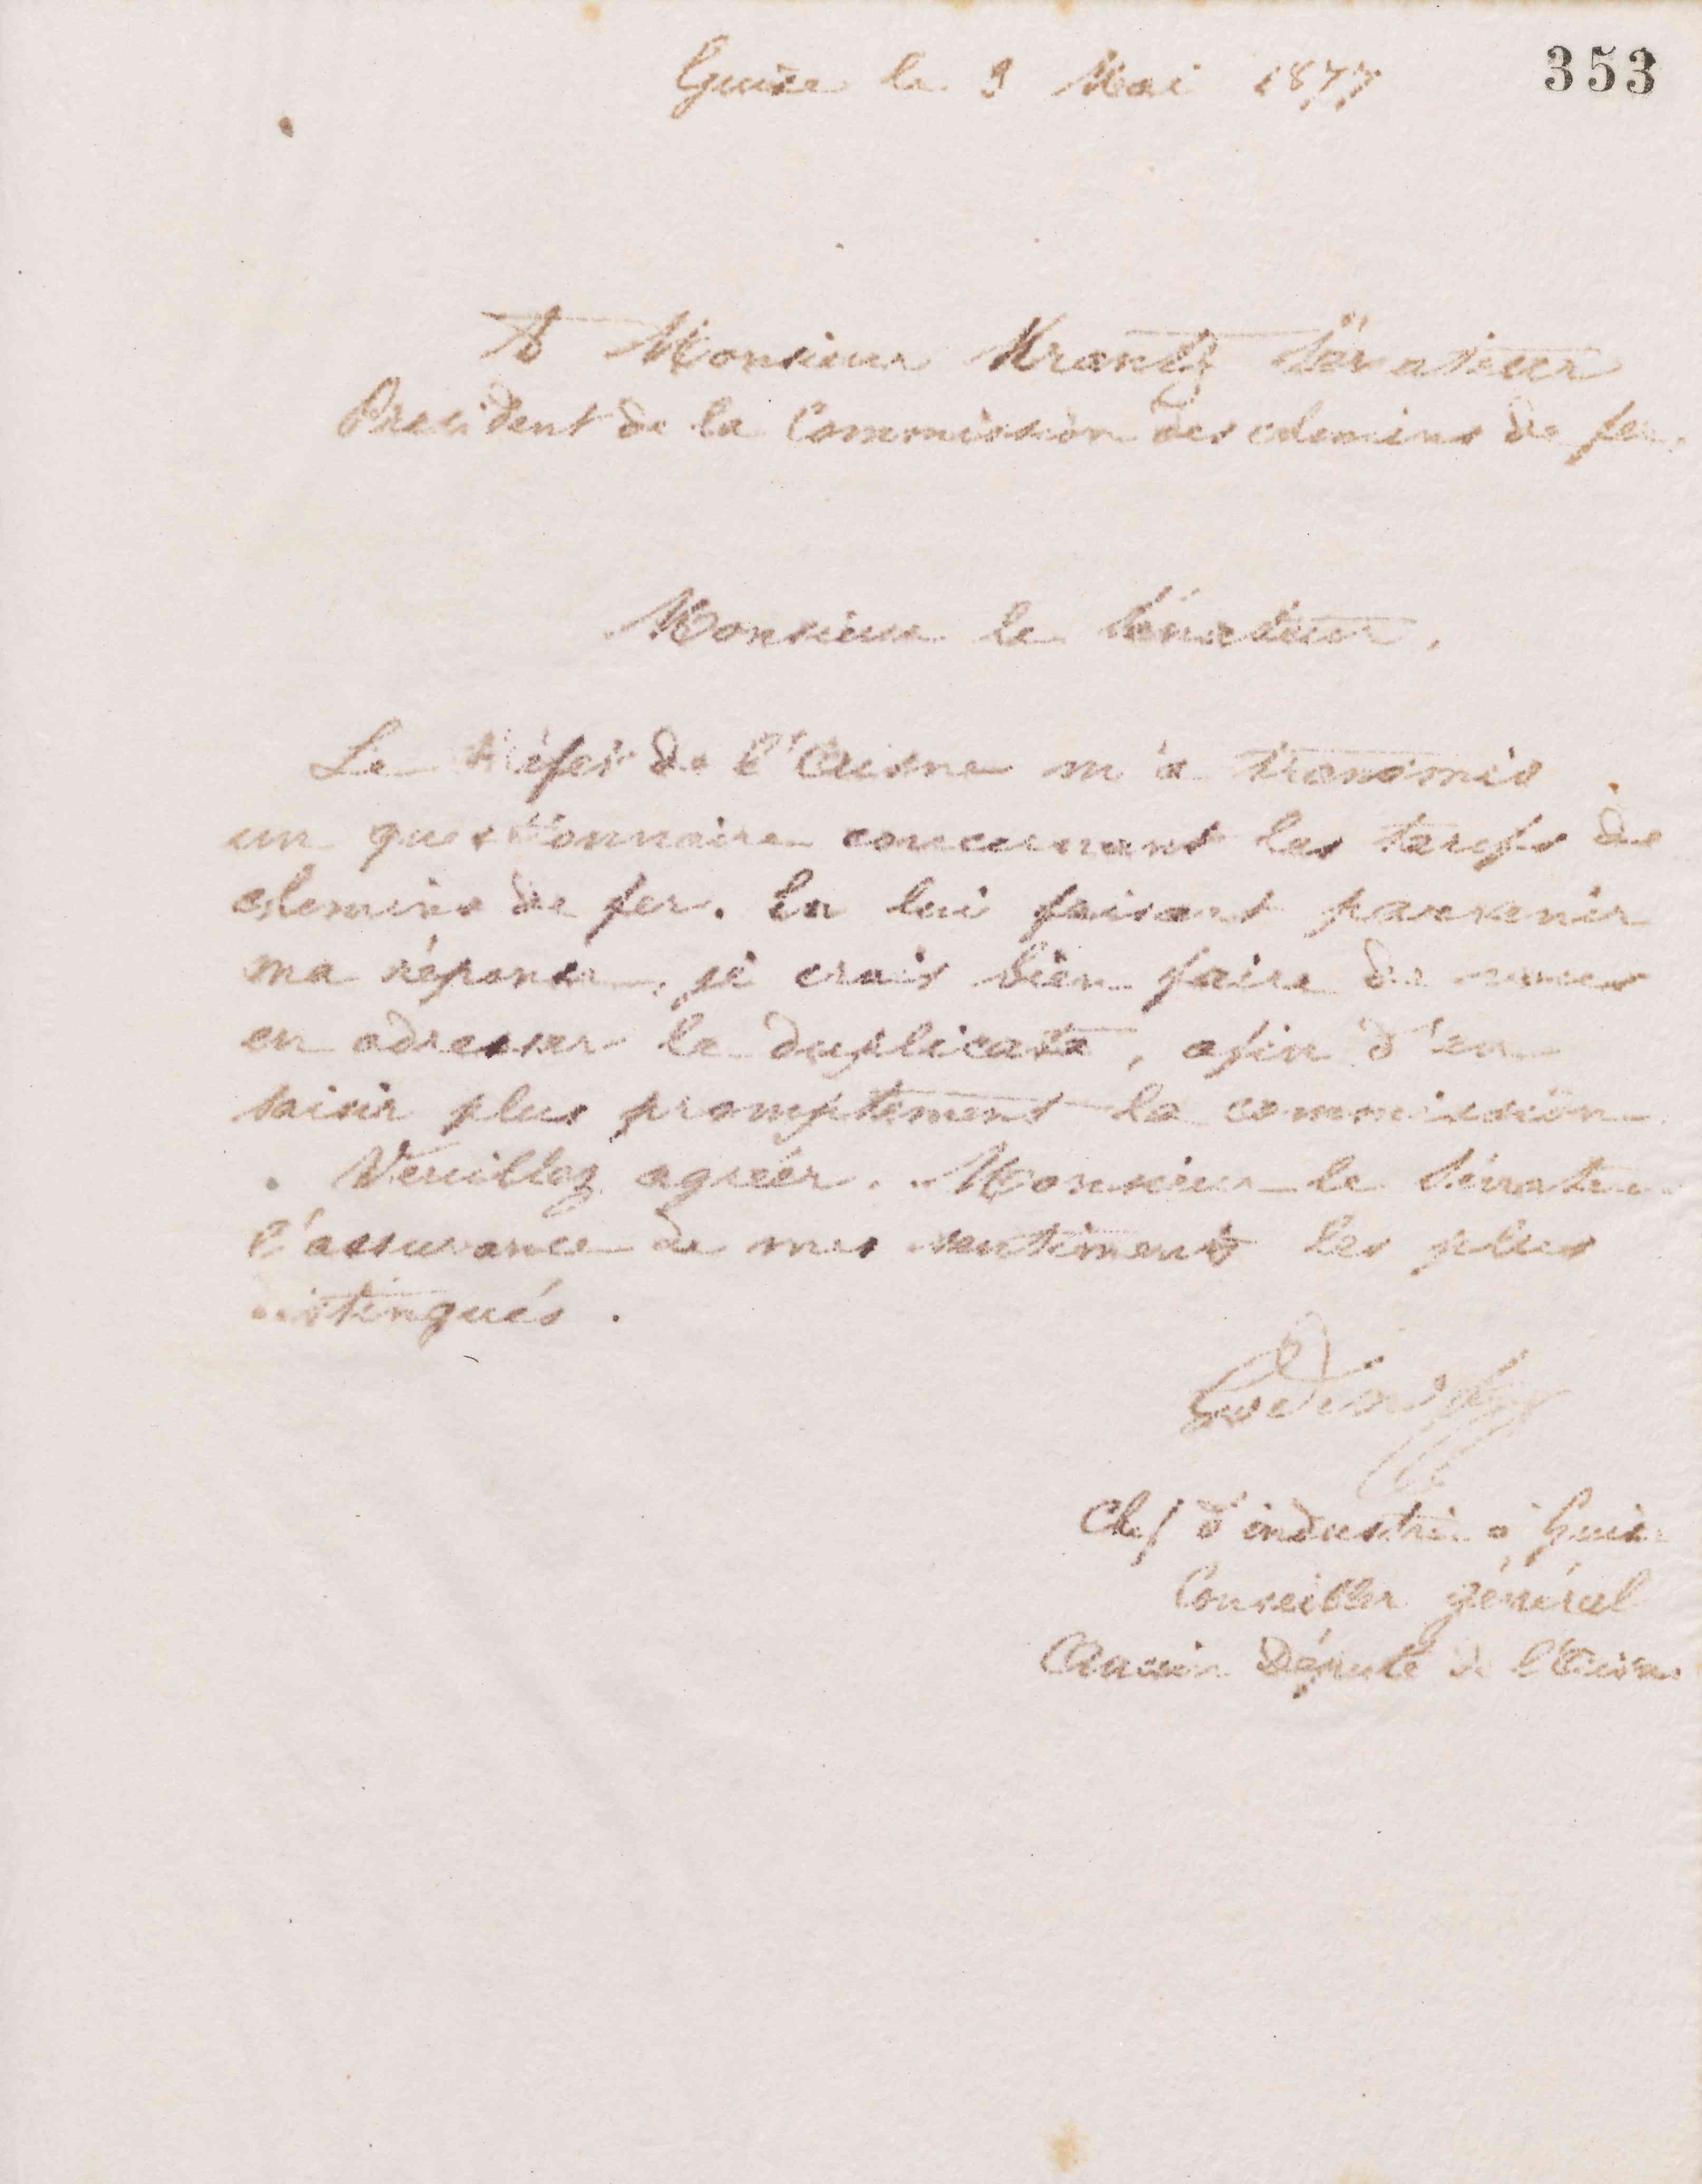 353
Guise le 9 Mai 1877
A Monsieur Krantz Sénateur
Président de la Commission des chemins de fer.
Monsieur le Sénateur,
Le Préfet de l'Aisne m'a transmis
un questionnaire concernant les tarifs de
chemins de fer. En lui faisant parvenir
ma réponse, je crois bien faire de vous
en adresser le duplicata, afin d'en
saisir plus promptement la commission
Veuillez agréer. Monsieur le Sénateur
l'assurance de mes sentiments les plus
distingués.
Godin
Chef d'industrie à Guise
Conseiller général
Ancien Député de l'Aisne